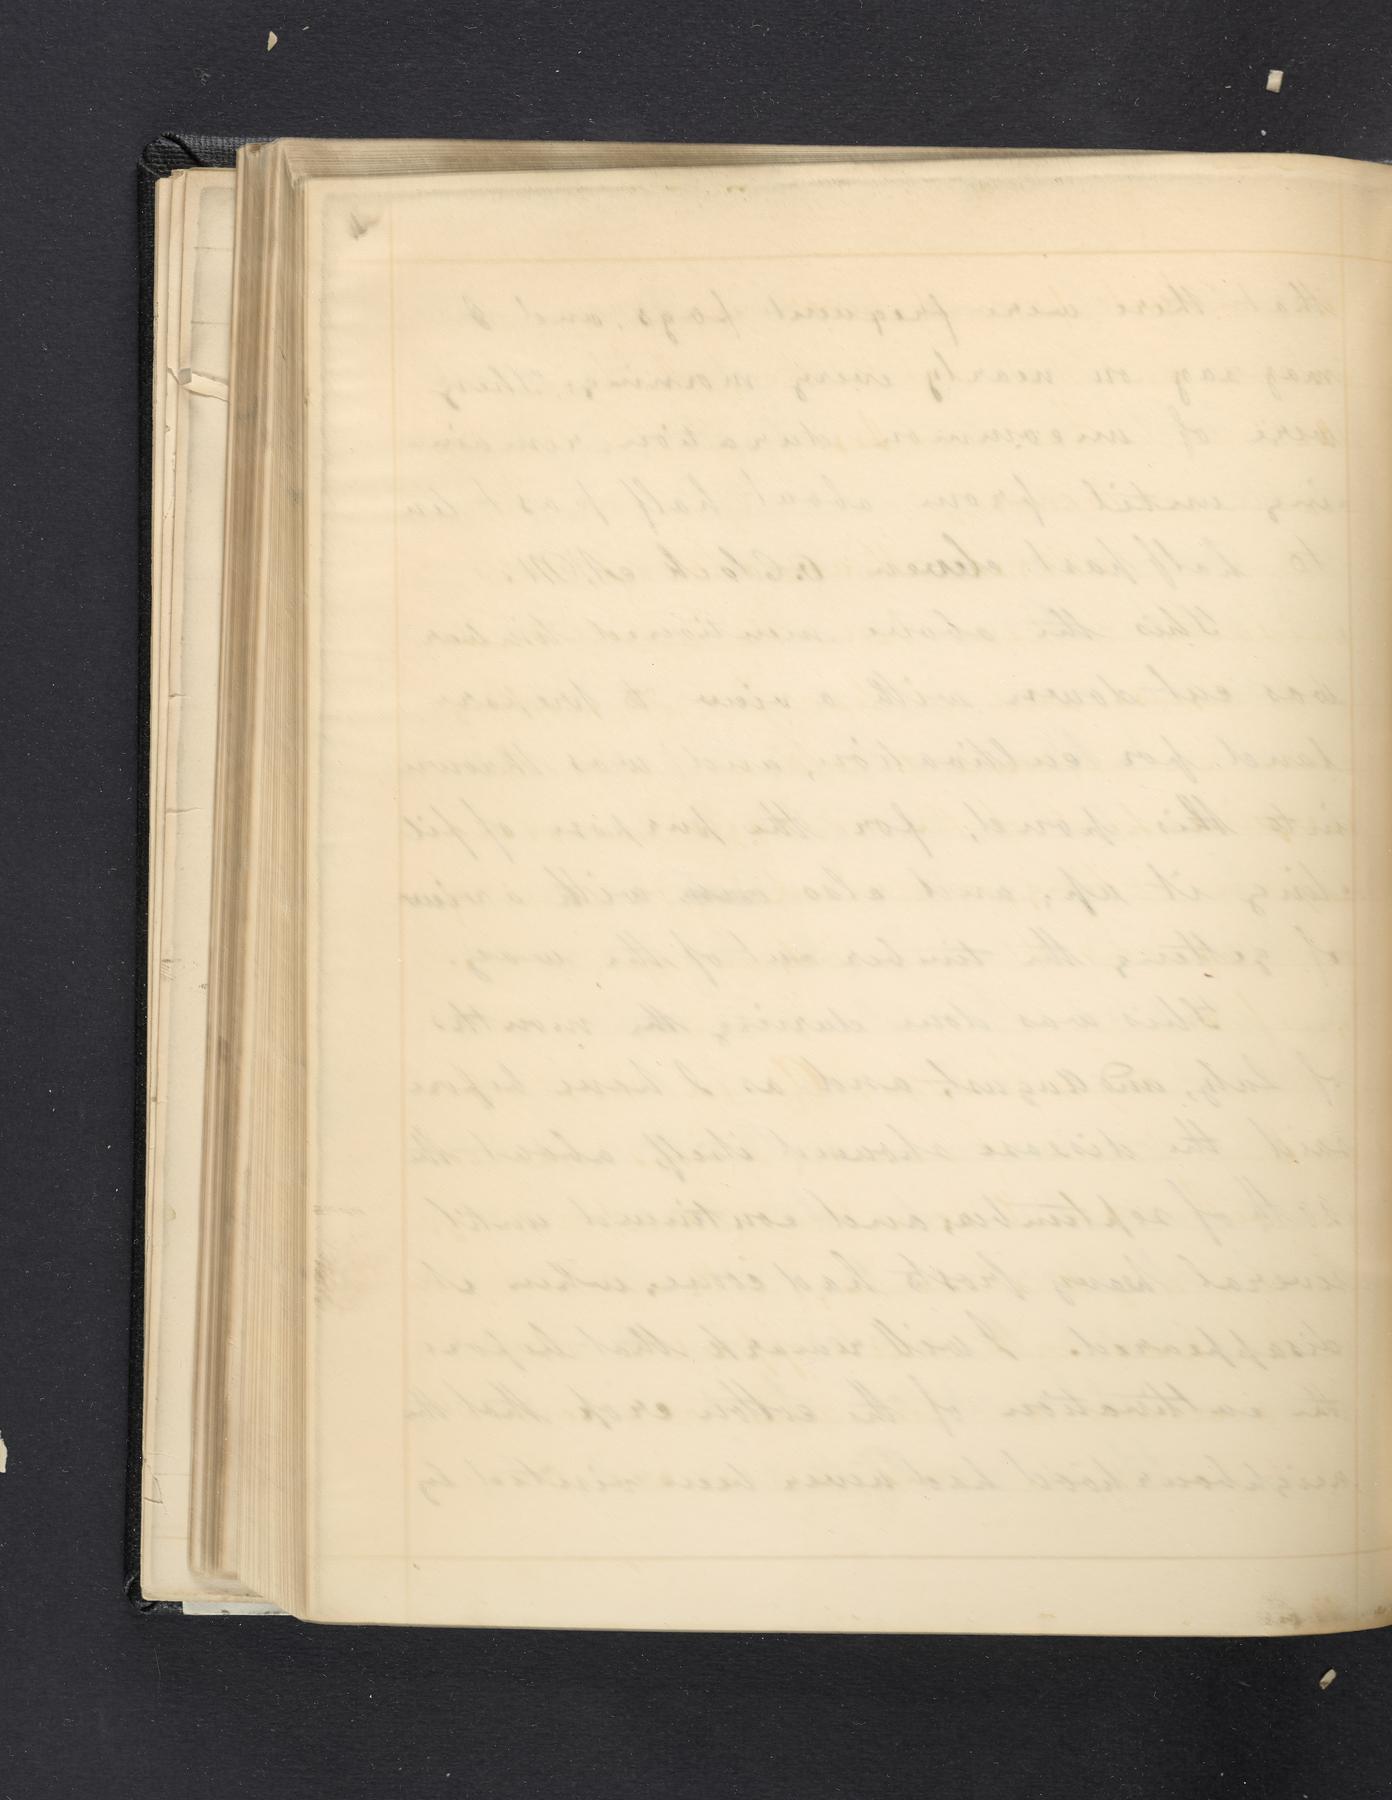 that there were frequent fogs, and I
may say on nearly every morning. They
were of uncommon duration, remain
ing until from about half past ten
to half past eleven O.Clock A.M.
This the above mentioned timber
was cut down with a view to prepare
land for cultivation, and was thrown
into this pond, for the purpose of fil
ling it up, and also with a view
of getting the timber out of the way.
This was done during the months
of July, and August, and as I have before
said the disease showed itself about the
of September, and continued until
several heavy frosts had come, when it
disappeared. I will remark that before
the cultivation of the cotton crop that the
neighbourhood had never been visited by